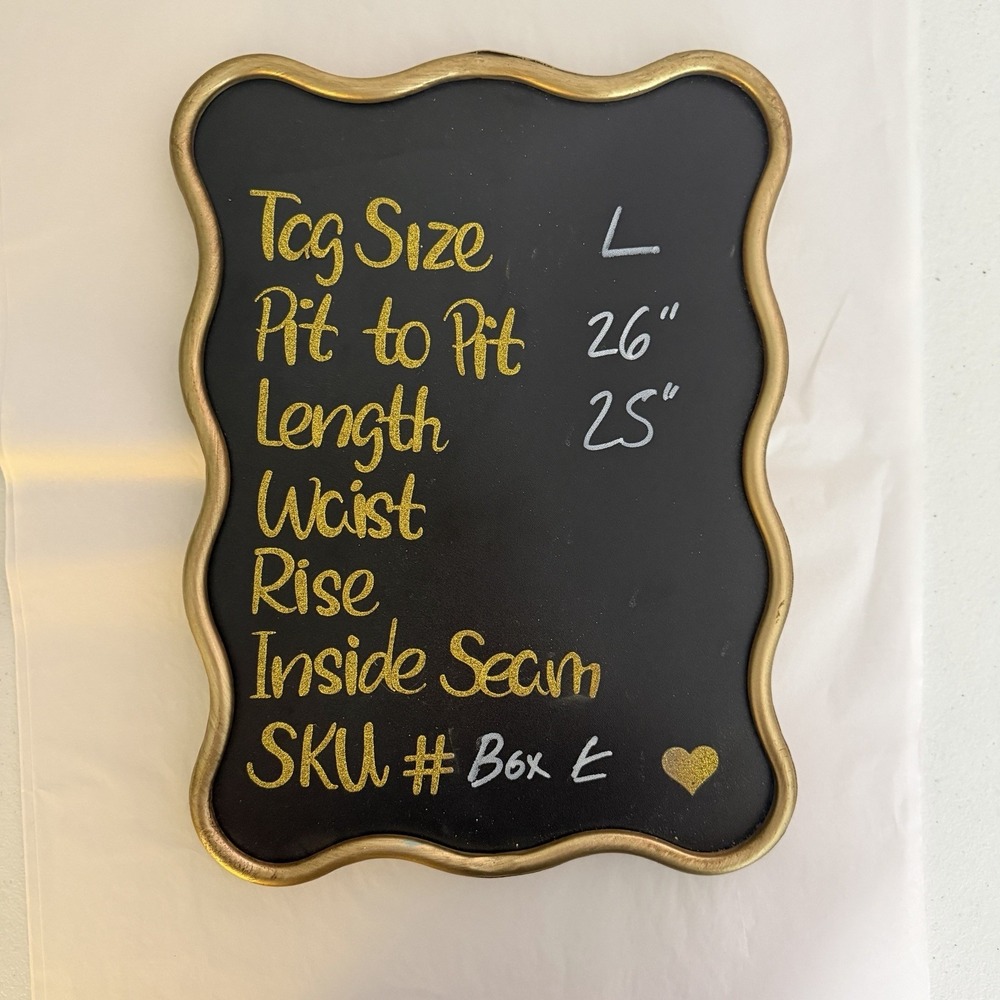 Tag Size L
Pit to Pit 26"
Length 25"
Waist
Rise
Inside Seam
SKU # Box E